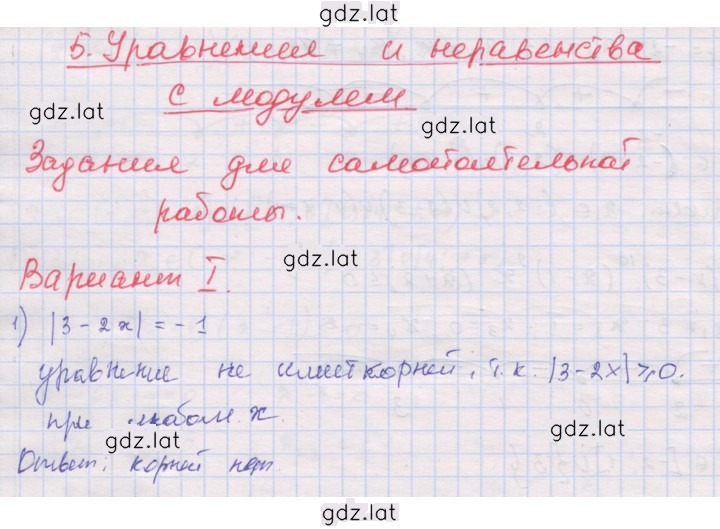 gdz.lat
5. Уравнения и неравенства
с модулем
gdz.lat
gdz.lat
Задания для самостоятельной
работы.
gdz.lat
Вариант I.
1) |3 - 2x| = - 1
уравнение не имеет корней, т.к. |3-2x| ⩾ 0.
при любом x.
gdz.lat
gdz.lat
Ответ: корней нет.
gdz.lat